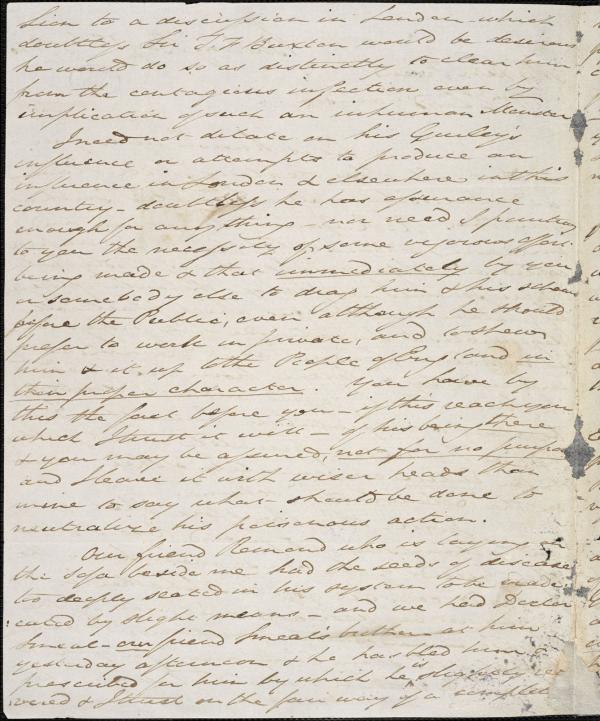 sion to a discussion in London – which
doubtless Sir T. F. Buxton would be desirous
he would do so as distinctly to clear him
from the contagious infection even by
implication of such an inhuman Monster
I need not debate on his Gurley's
influence or attempts to produce an
influence in London & elsewhere in this
country – doubtless he has assurance
enough for any thing – nor need I point
to you the necessity of some vigorous effort
being made & that immediately by you
or somebody else to drag him & his scheme
before the Public, even although he should
prefer to work in private, and to shew
him & it up to the People of England in
their proper character. You have by
this the fact before you – if this reach you
which I trust it will – of his being there
& you may be assured, not for no purpose
and I leave it with wiser heads than
mine to say what should be done to
neutralize his poisonous action.
Our friend Remond who is laying on
the Sofa beside me had the seeds of disease
too deeply seated in his system to be
cured by slight means – and we had Doctor
Smeal – our friend Smeal's brother at him
yesterday afternoon & he has bled him &
prescribed for him by which he is
& I trust on the fair way of a complete